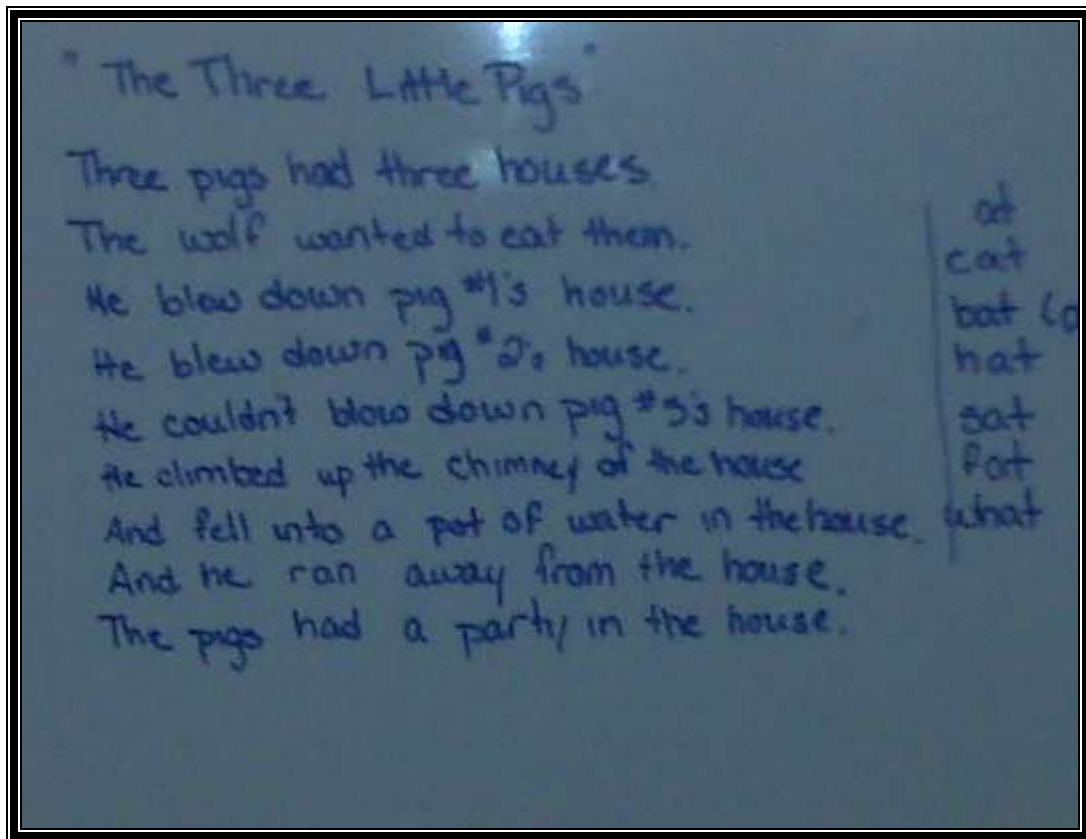 "The Three Little Pigs"
Three pigs had three houses.
The wolf wanted to eat them.
He blew down pig #1's house.
He blew down pig #2's house.
He couldn't blow down pig #3's house.
He climbed up the chimney of the house
And fell into a pot of water in the house.
And he ran away from the house.
The pigs had a party in the house.
at
cat
bat
hat
sat
fat
what